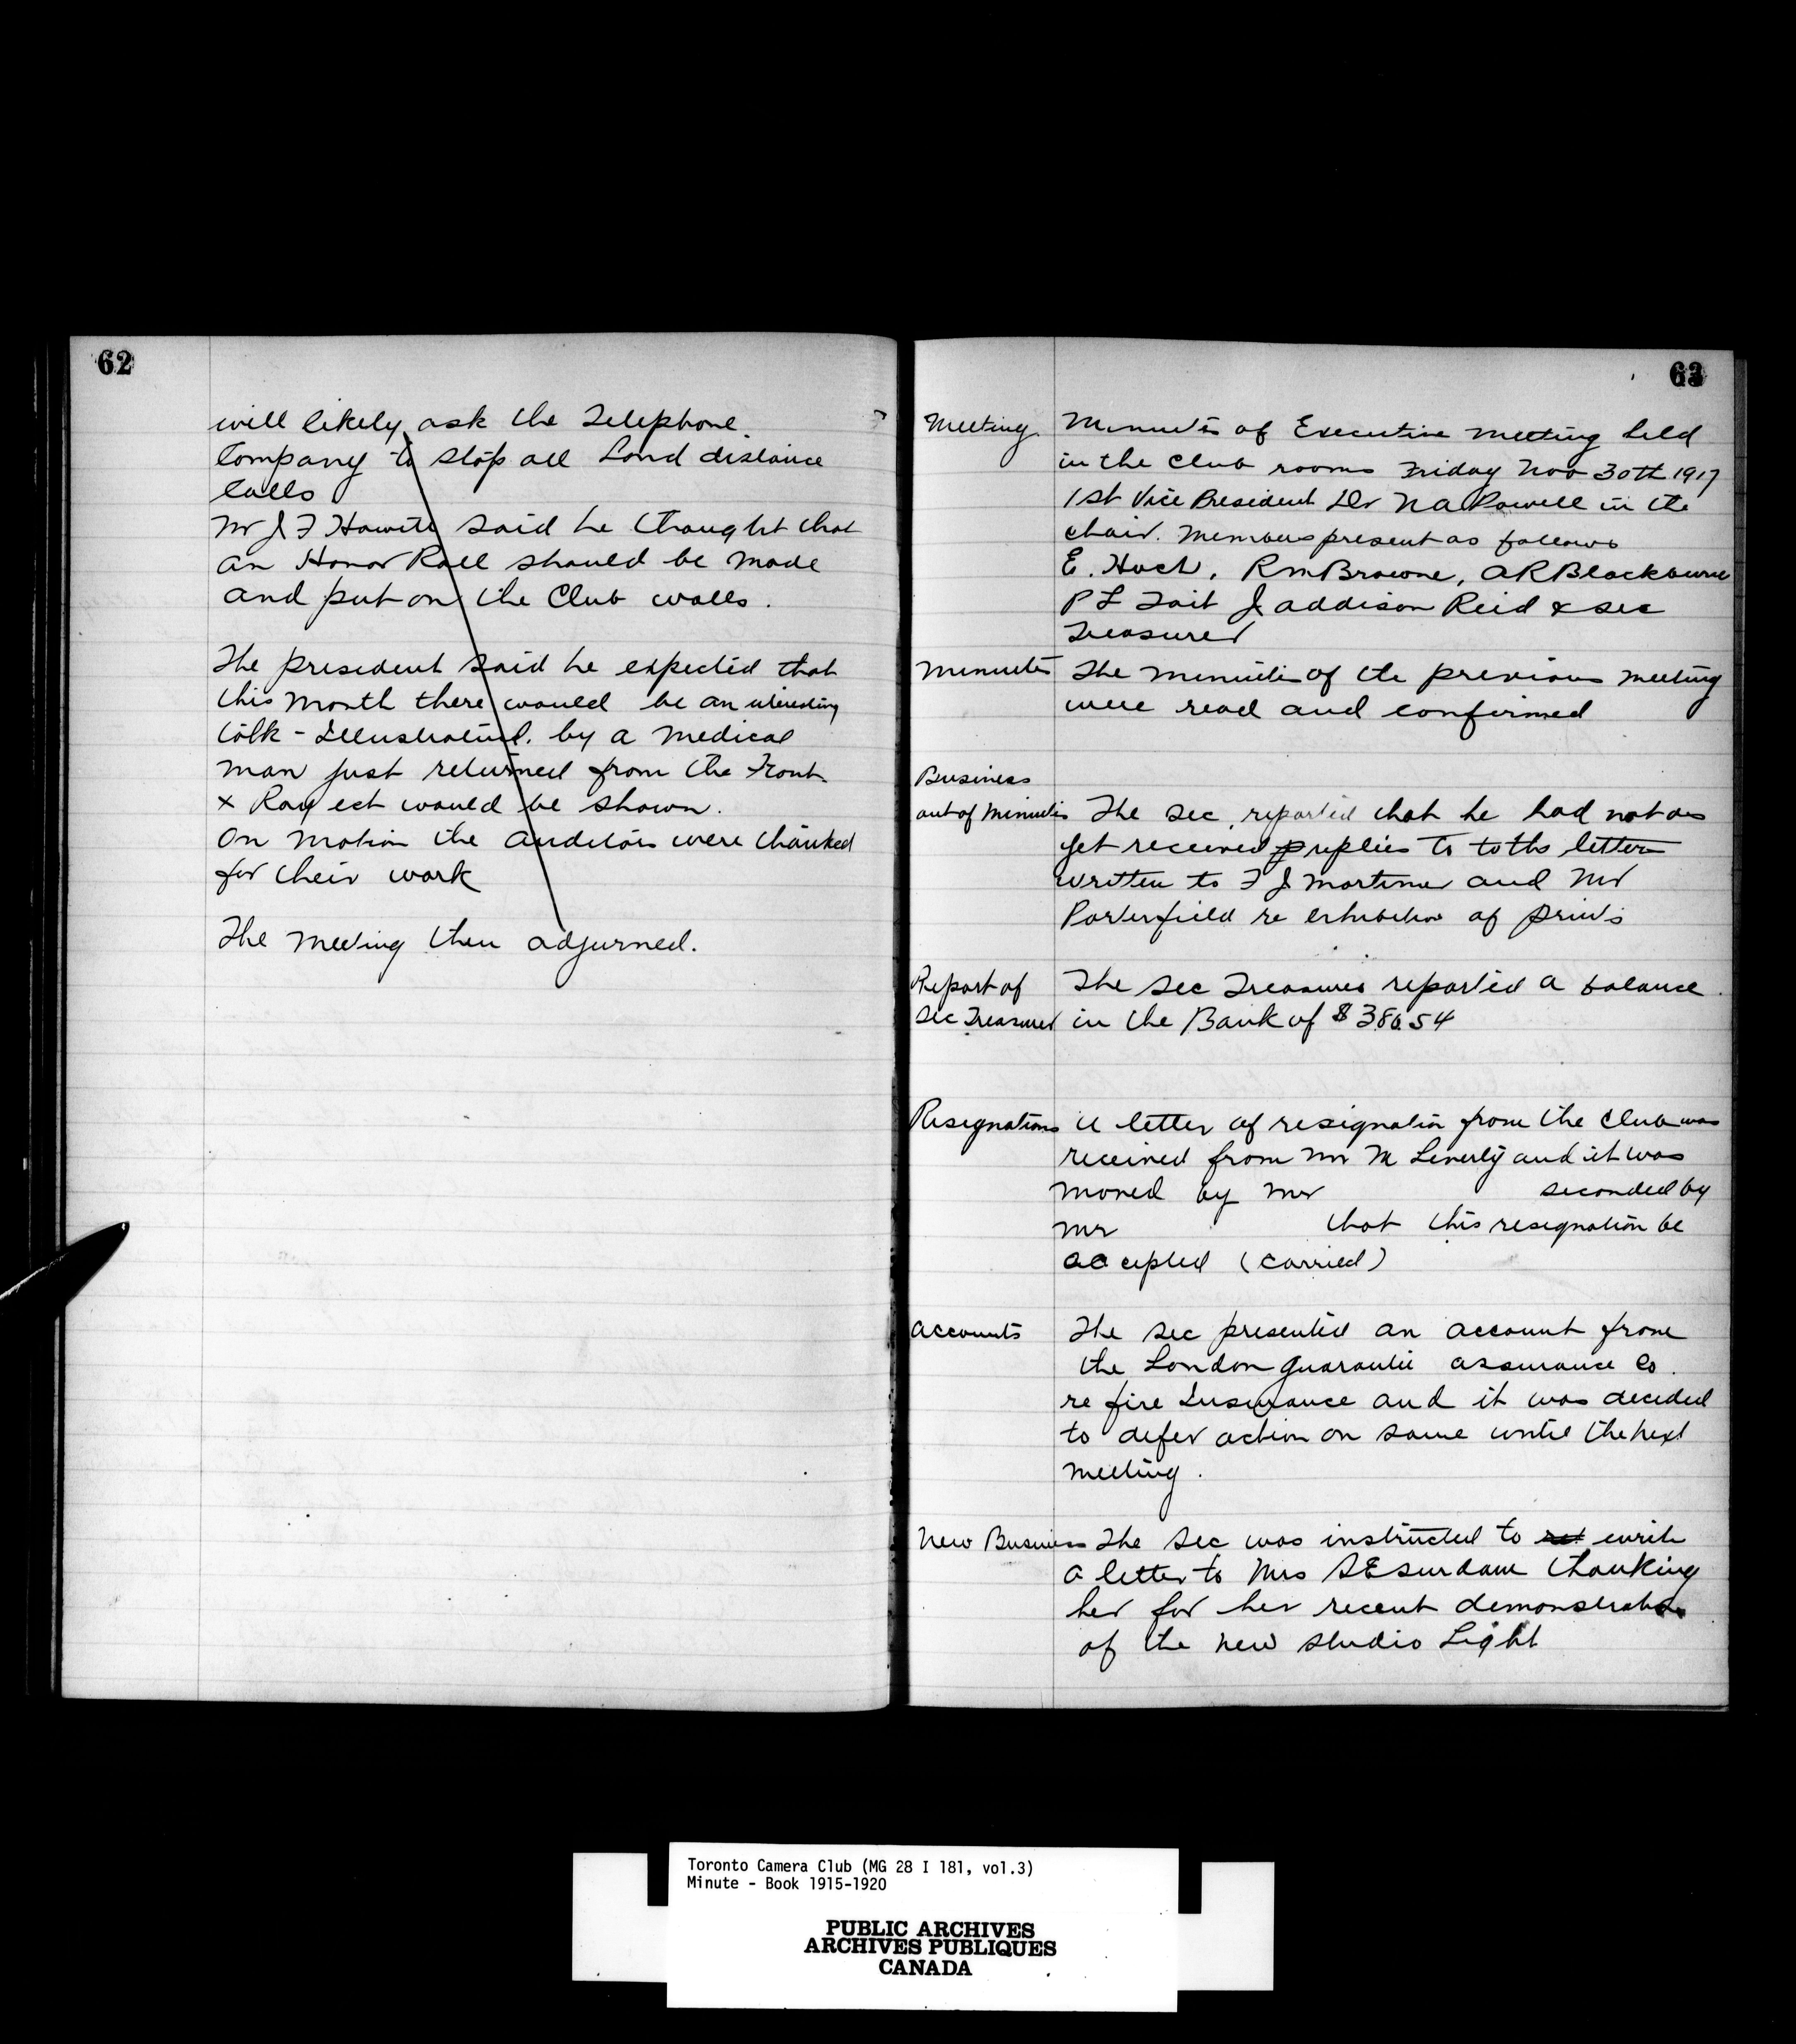 62
will likely ask the Telephone
Company to stop all Lond distance
Calls
Mr J F Howitt said he thought that
an Honor Roll should be made
and put on the Club walls.
The president said he expected that
this month there would be an interesting
talk - Illustrated. by a medical
man just returned from the Front
X Ray ect would be shown.
On motion the auditors were thanked
for their work
The meeting then adjurned.
63
Meeting
Minutes of Executive meeting held
in the club rooms Friday Nov 30th 1917
1st Vice President Dr N A Powell in the
chair. Members present as follows
E. Hoch, R M Browne, A R Blackburne
P L Tait J Addison Reid & Sec
Treasurer
Minutes
The minutes of the previous meeting
were read and confirmed
Business
out of Minutes
The Sec. reported that he had not as
yet received replies to the letters
written to F J Mortimer and Mr
Porterfield re exhibition of prints
Report of
Sec Treasurer
The Sec Treasurer reported a balance
in the Bank of $386.54
Resignations
A letter of resignation from the Club was
received from Mr M and it was
moved by Mr seconded by
Mr that this resignation be
accepted (carried)
Accounts
The Sec presented an account from
the London Guarantee Assurance Co.
re fire Insurance and it was decided
to defer action on same until the next
meeting.
New Business
The Sec was instructed to write
a letter to Mrs S E Surdam thanking
her for her recent demonstration
of the new studio Light
Toronto Camera Club (MG 28 I 181, vol.3)
Minute - Book 1915-1920
PUBLIC ARCHIVES
ARCHIVES PUBLIQUES
CANADA